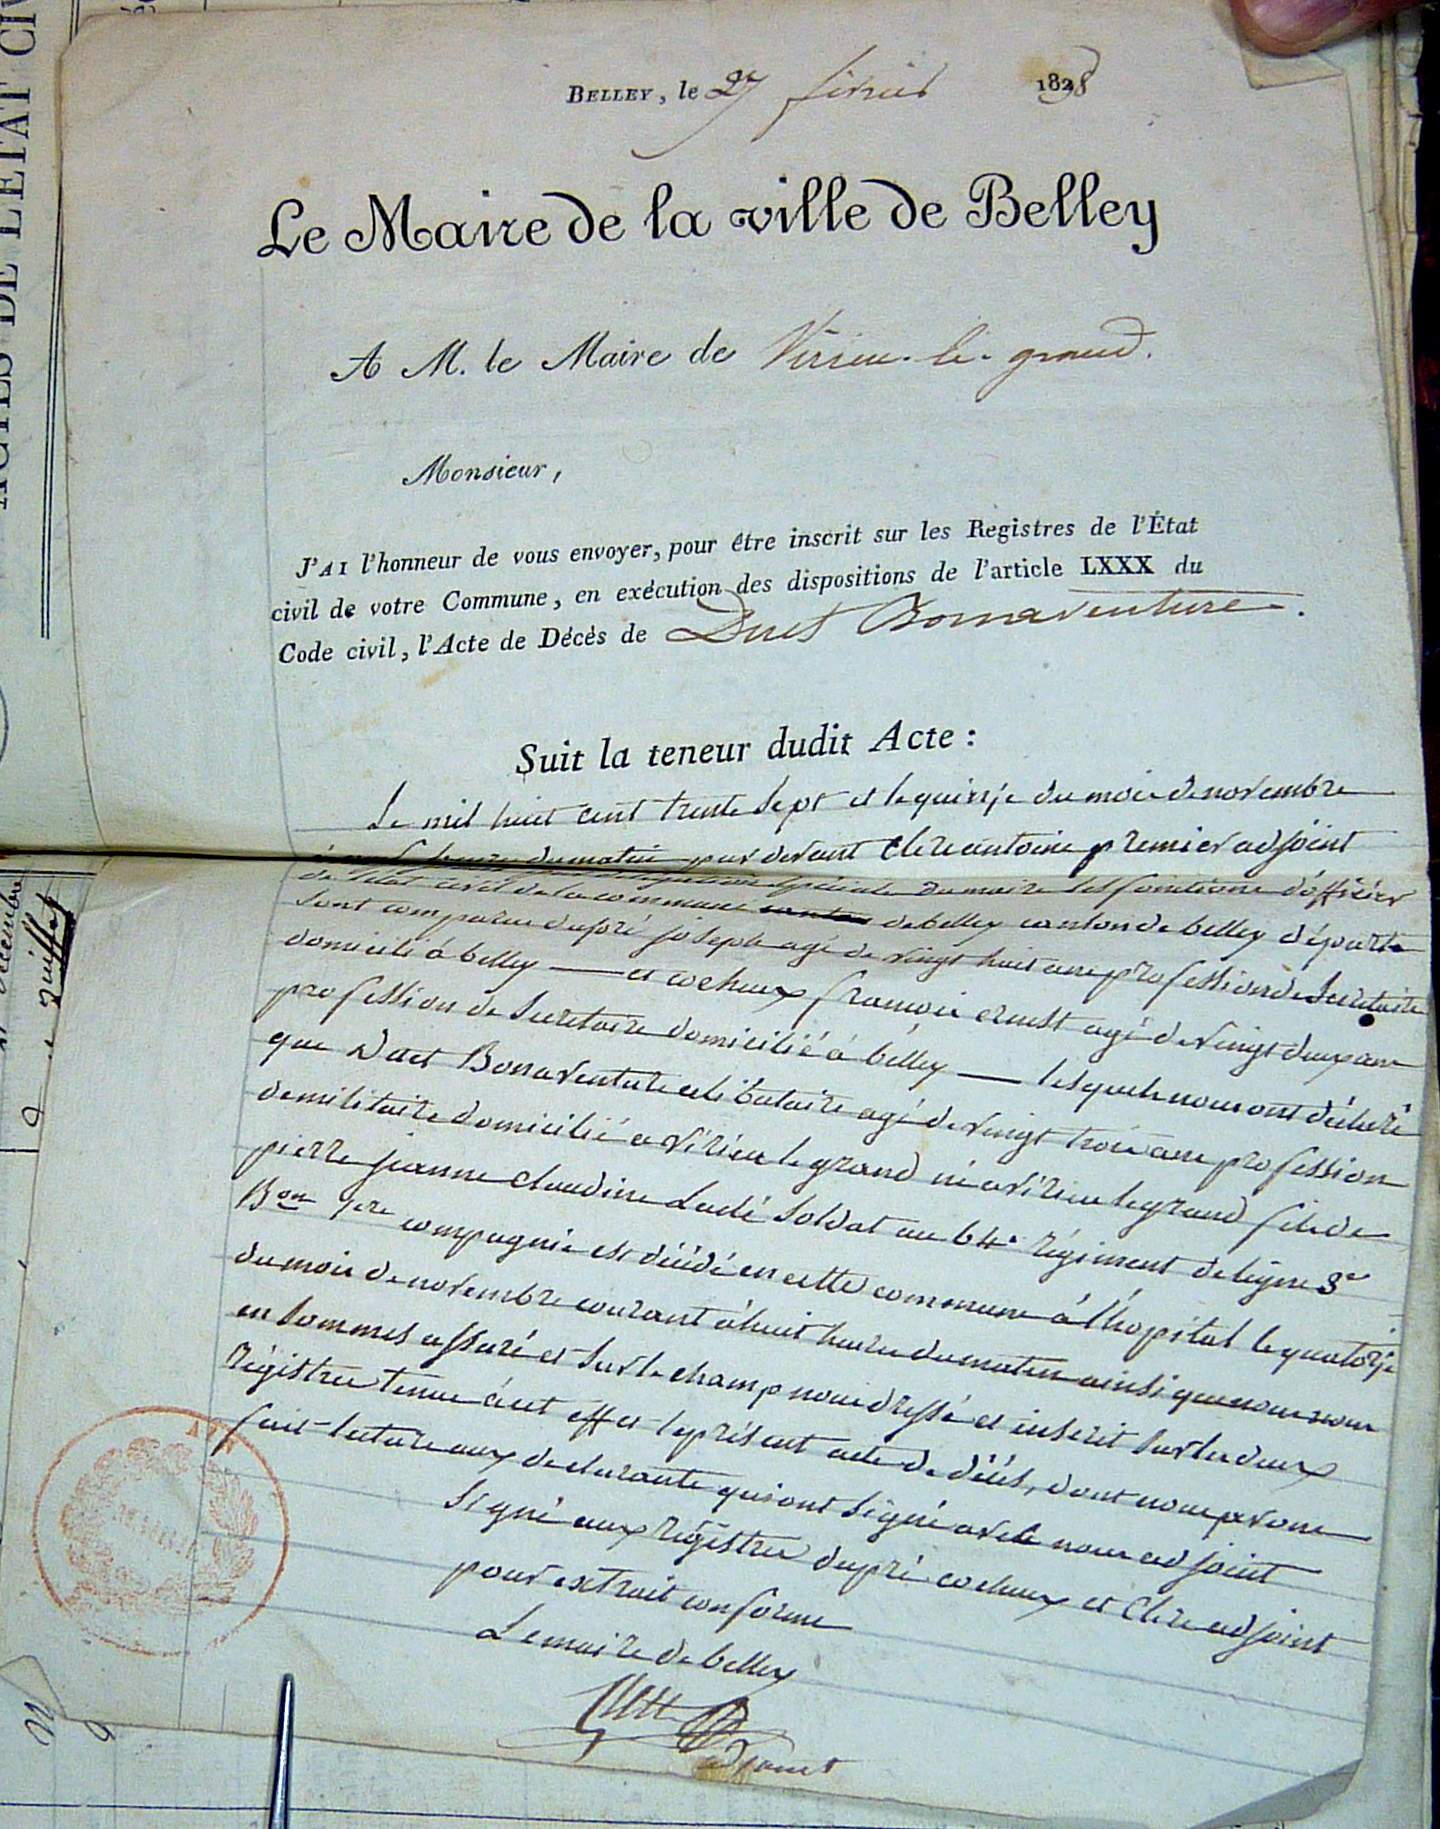 BELLEY, le 27 février 1838
Le Maire de la ville de Belley
A M. le Maire de Virieu-le-grand.
Monsieur,
J'AI l'honneur de vous envoyer, pour être inscrit sur les Registres de l'État
civil de votre Commune, en exécution des dispositions de l'article LXXX du
Code civil, l'Acte de Décès de Duet Bonaventure.
Suit la teneur dudit Acte :
Le mil huit cent trente sept et le quinze du mois de novembre
du matin par devant Clerc antoine premier adjoint
spéciale du maire les fonctions d'officier
de l'état civil de la commune de belley canton de belley départe
sont comparu dupré joseph agé de vingt huit ans profession de Secretaire
domicilié à belley — et cochaux françois ernest agé de vingt deux ans
profession de Secretaire domicilié à belley — lesquels nous ont déclaré
que Duet Bonaventure celibataire agé de vingt trois ans profession
de militaire domicilié a virieu le grand né a virieu le grand fils de
pierre jeanne claudine Ladé Soldat au 64e régiment de ligne 3e
Bon 1ere compagnie est décédé en cette commune à l'hopital le quatorze
du mois de novembre courant à huit heures du matin ainsi que nous nous
en sommes assuré et sur le champ nous dressé et inscrit sur les deux
régistres tenus à cet effet le présent acte de décés, dont nous avons
fait lecture aux declarants qui ont signé avec nous adjoint
Signé aux régistres dupré cochaux et Clerc adjoint
pour extrait conforme
Le maire de belley
adjoint
AIN
MAIRIE
ACTES DE L'ÉTAT CIV